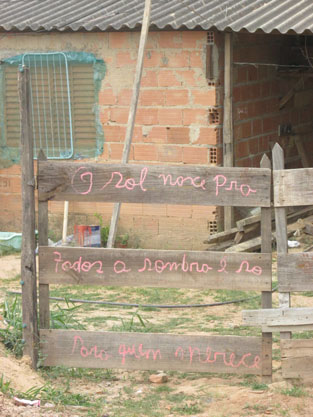 O sol nace pra
Todos a sombra é so
Para quem merece